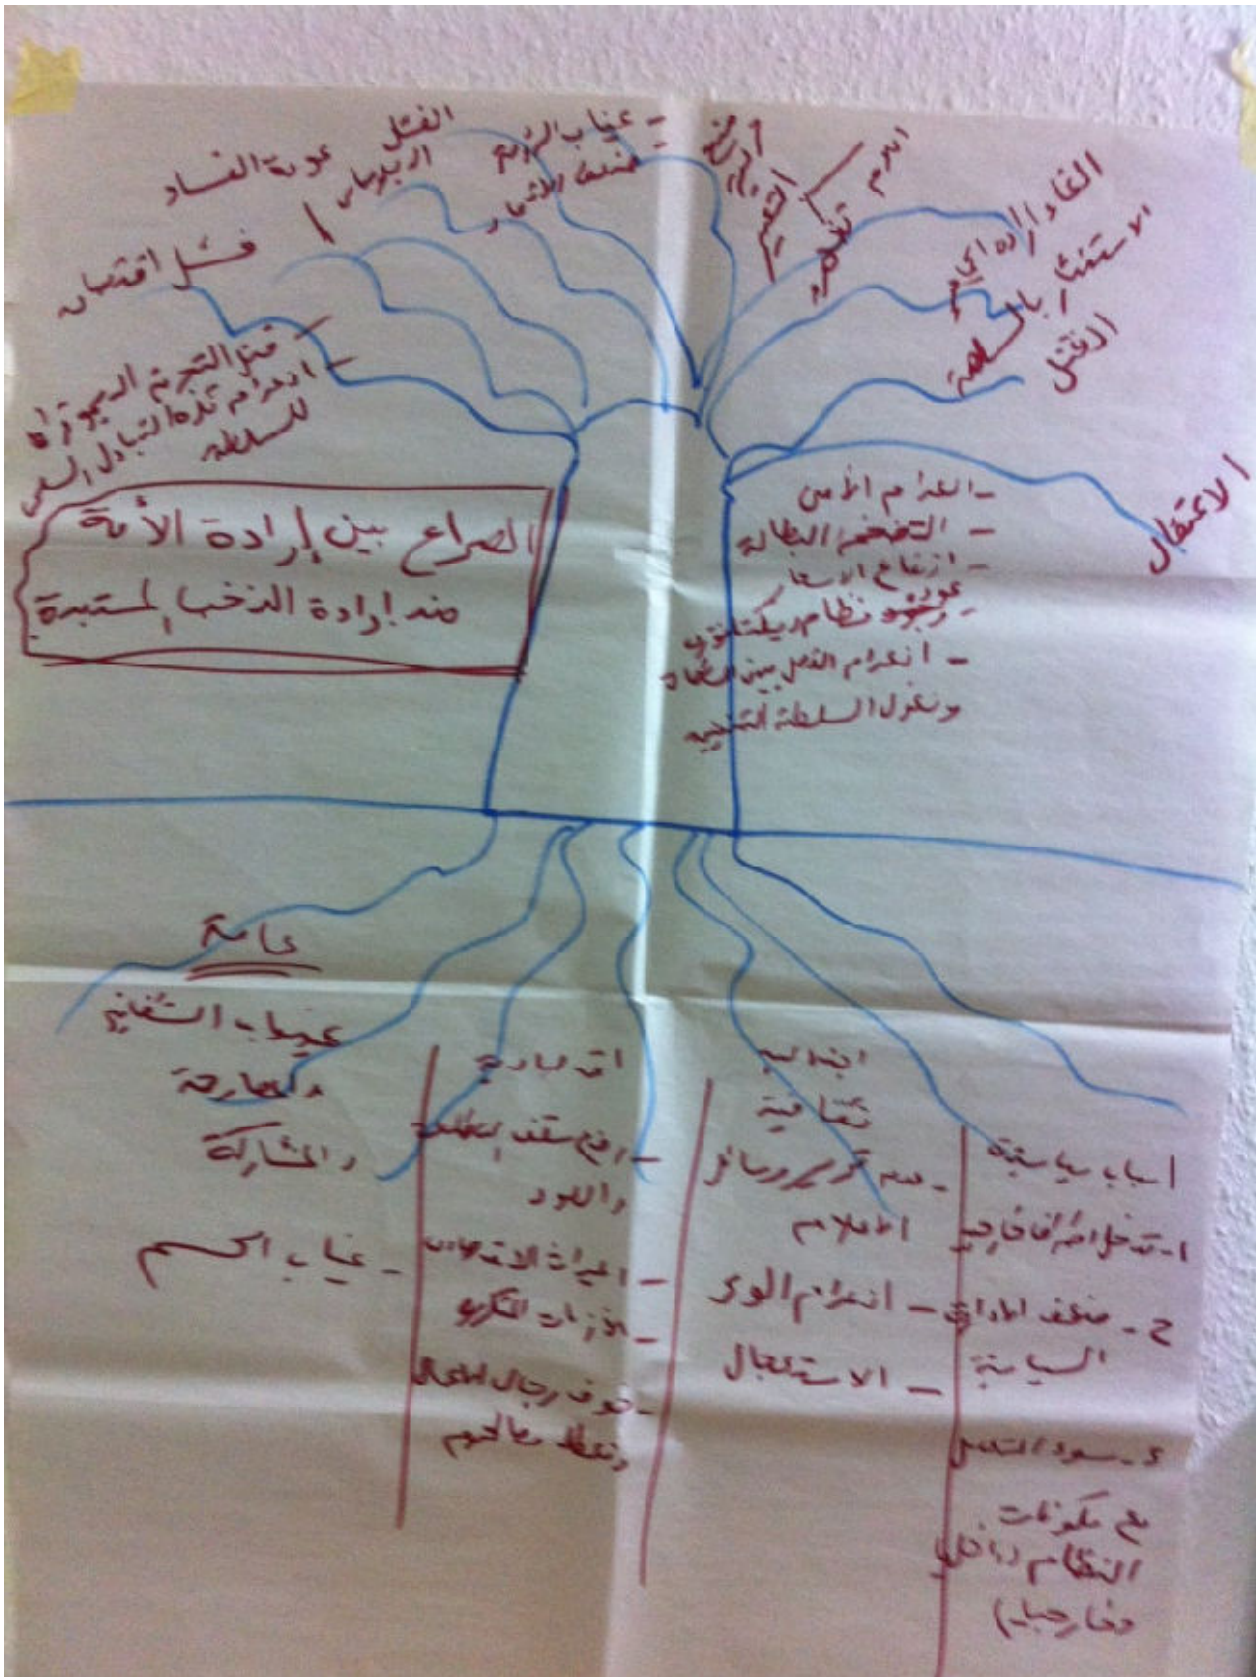 القتل
عودة الفساد
- غياب الرؤية
الدم
الغاء ارادة
الاستئثار بالسلطة
القتل
الاعتقال
فشل اقتصادي
- فشل التجربة الديموقراطية
- انعدام التبادل السلمي
للسلطة
الصراع بين إرادة الأمة
ضد إرادة النخب المستبدة
- انعدام الأمن
- التضخم البطالة
- ارتفاع الاسعار
- عودة نظام ديكتاتوري
- انعدام الفصل بين السلطات
وتغول السلطة التنفيذية
عامة
غياب الشفافية
والمصارحة
والمشاركة
- غياب الحسم
اقتصادية
- رفع سقف المطالب
والوعود
- الميراث الاقتصادي
- الأزمات المتكررة
- خوف رجال الأعمال
وتعطل مصالحهم
ثقافية
الاعلام
- انعدام الوعي
- الاستعجال
أسباب سياسية
١- تدخل اطراف خارجية
٢- ضعف الأداء
السياسية
٤- سوء التعامل
مع مكونات
النظام داخليا
وخارجيا